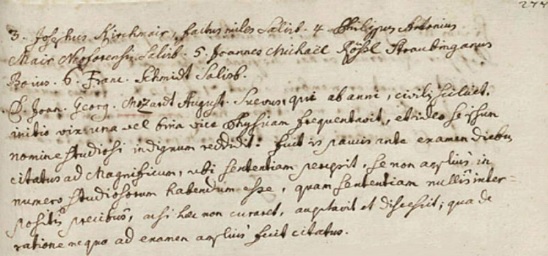 3. Josephus Kirchmair, factus miles Salisb. 4 Philippus Antonius
Mair Salisb. 5 Joannes Michaël Rössl Straubinganus
Boius. 6. Franc. Schmidt Salisb.
D. Joan. Georg. Mozardt August. Suevus, qui ab anni, civilis scilicet,
initio vix una vel bina vice Physicam frequentavit, et ideo se ipsum
nomine studiosi indignum reddidit: fuit is paucis ante examen diebus
citatus ad Magnificum, ubi sententiam percepit, se non amplius in
numero studiosorum habendum esse, quam sententiam nullis inter-
positis precibus, acsi hac non curaret, acceptavit et discessit; qua de
ratione neque ad examen amplius fuit citatus.